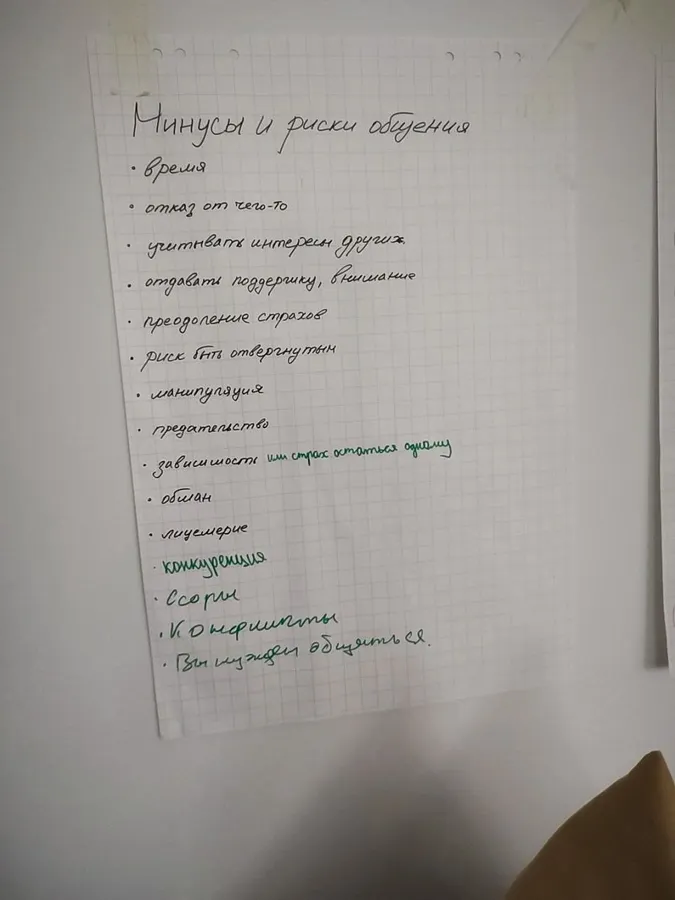 Минусы и риски общения
• время
• отказ от чего-то
• учитывать интересы других
• отдавать поддержку, внимание
• преодоление страхов
• риск быть отвергнутым
• манипуляция
• предательство
• зависимость или страх остаться одному
• обман
• лицемерие
• конкуренция
• Ссоры
• Конфликты
• Вынужден общаться.